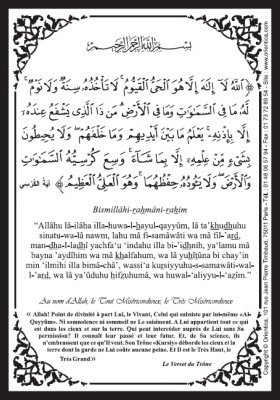 بسم الله الرحمن الرحيم
﴿ اللَّهُ لَا إِلَٰهَ إِلَّا هُوَ الْحَيُّ الْقَيُّومُ ۚ لَا تَأْخُذُهُ سِنَةٌ وَلَا نَوْمٌ ۚ
لَهُ مَا فِي السَّمَاوَاتِ وَمَا فِي الْأَرْضِ ۗ مَن ذَا الَّذِي يَشْفَعُ عِندَهُ
إِلَّا بِإِذْنِهِ ۚ يَعْلَمُ مَا بَيْنَ أَيْدِيهِمْ وَمَا خَلْفَهُمْ ۖ وَلَا يُحِيطُونَ
بِشَيْءٍ مِّنْ عِلْمِهِ إِلَّا بِمَا شَاءَ ۚ وَسِعَ كُرْسِيُّهُ السَّمَاوَاتِ
وَالْأَرْضَ ۖ وَلَا يَئُودُهُ حِفْظُهُمَا ۚ وَهُوَ الْعَلِيُّ الْعَظِيمُ ﴾ آية الكرسي
Bismillâhi-rahmâni-rahim
"Allâhu lâ-ilâha illa-huwa-l-hayul-qayyûm, lâ ta'khudhuhu
sinatu-wa-lâ nawm, lahu mâ fî-samâwâti wa mâ fil-'ard,
man-dha-l-ladhî yachfa'u 'indahu illa bi-'idhnih, ya'lamu mâ
bayna 'aydîhim wa mâ khalfahum, wa lâ yuhîtûna bi chay'in
min 'ilmihi illa bimâ-châ', wassi'a kursiyyuhu-s-samawâti-wal-
l-'ard, wa lâ ya'ûduhu hifzuhumâ, wa huwal-'aliyyu-l-'azîm."
Au nom d'Allah, le Tout Miséricordieux, le Très Miséricordieux
« Allah! Point de divinité à part Lui, le Vivant, Celui qui subsiste par lui-même «Al-
Qayyûm». Ni somnolence ni sommeil ne Le saisissent. A Lui appartient tout ce qui
est dans les cieux et sur la terre. Qui peut intercéder auprès de Lui sans Sa
permission? Il connaît leur passé et leur futur. Et, de Sa science, ils
n'embrassent que ce qu'Il veut. Son Trône «Kursiy» déborde les cieux et la
terre dont la garde ne Lui coûte aucune peine. Et Il est le Très Haut, le
Très Grand »
Le Verset du Trône
Copyright © Orientica, 101 rue Jean Pierre Timbaud, 75011 Paris - Tél.: 01 48 06 57 94 - Fax : 01 73 72 89 54 - Site: www.orientica.com